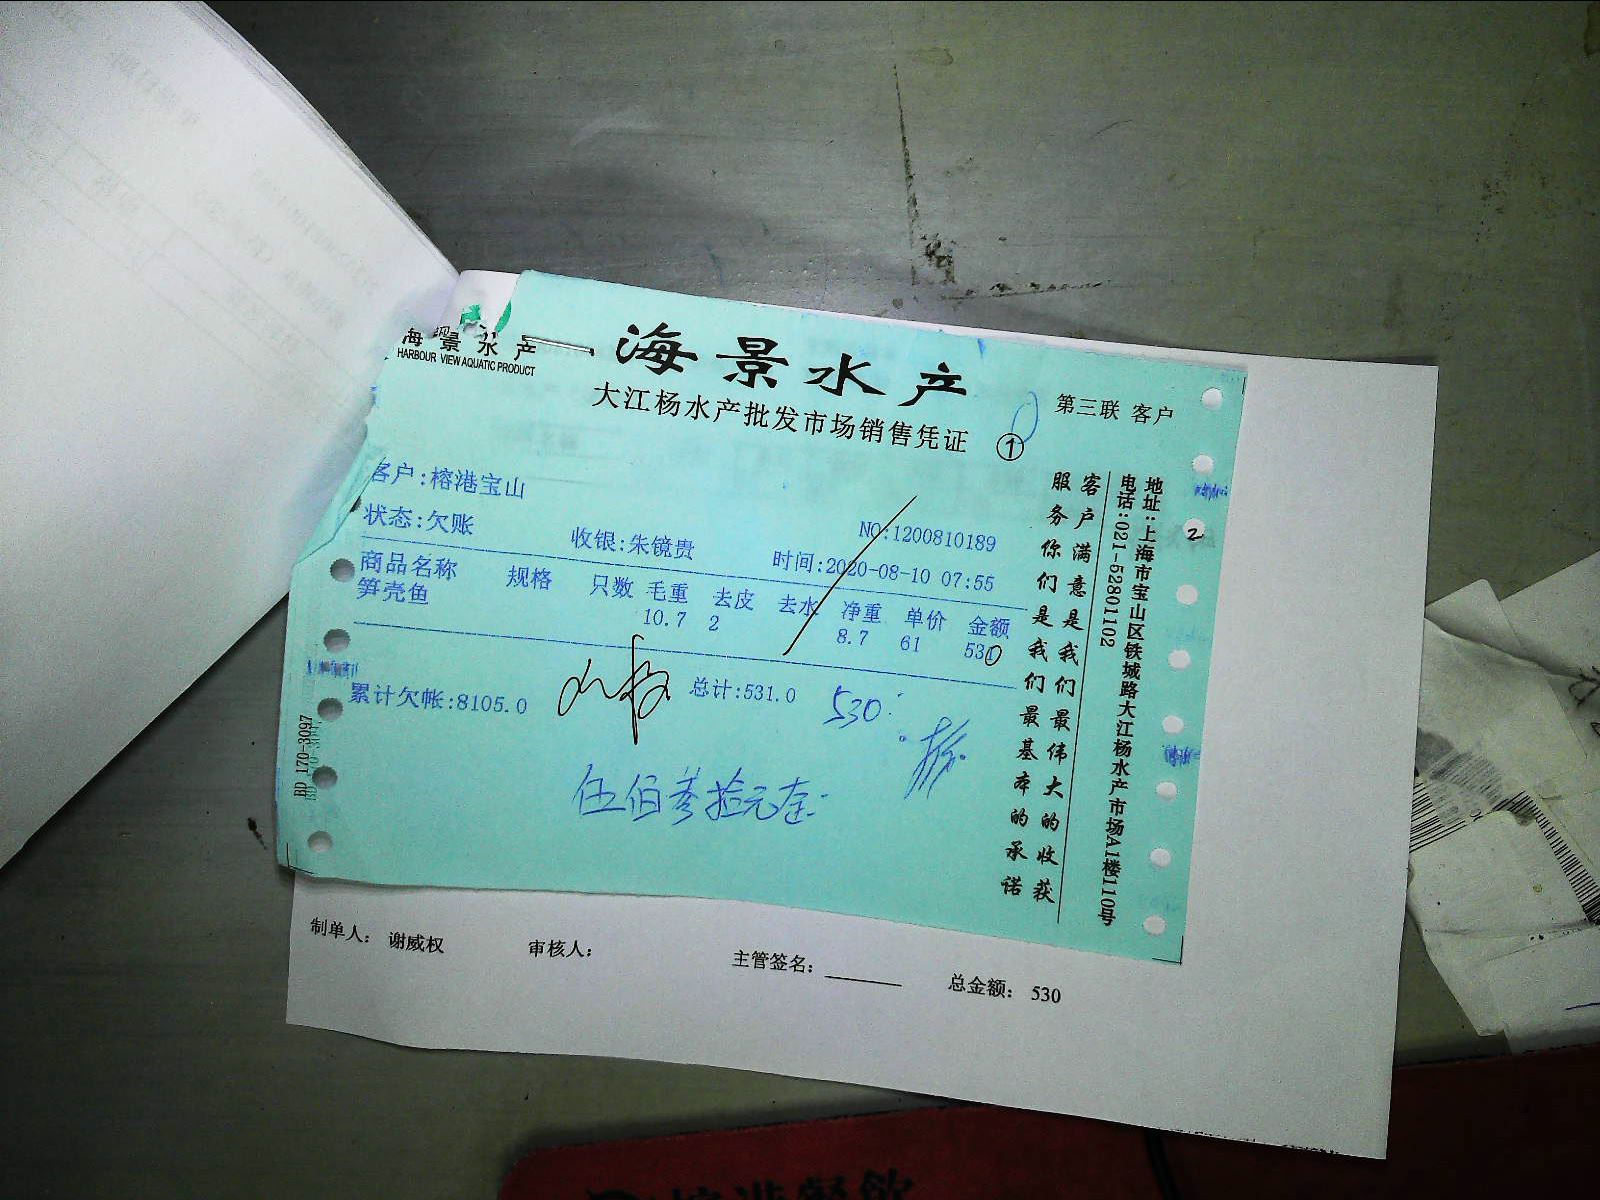 海景水产
HARBOUR VIEW AQUATIC PRODUCT
海景水产
大江杨水产批发市场销售凭证 ①
第三联 客户
客户:榕港宝山
状态:欠账
收银:朱镜贵
NO:1200810189
时间:2020-08-10 07:55
商品名称 规格 只数 毛重 去皮 去水 净重 单价 金额
笋壳鱼 10.7 2 8.7 61 530
累计欠帐:8105.0
总计:531.0
530
伍佰叁拾元整
客户满意是我们最伟大的收获
服务你们是我们最基本的承诺
地址:上海市宝山区铁城路大江杨水产市场A1楼110号
电话:021-52801102
2
BD 170-3097
制单人: 谢威权
审核人:
主管签名:
总金额: 530